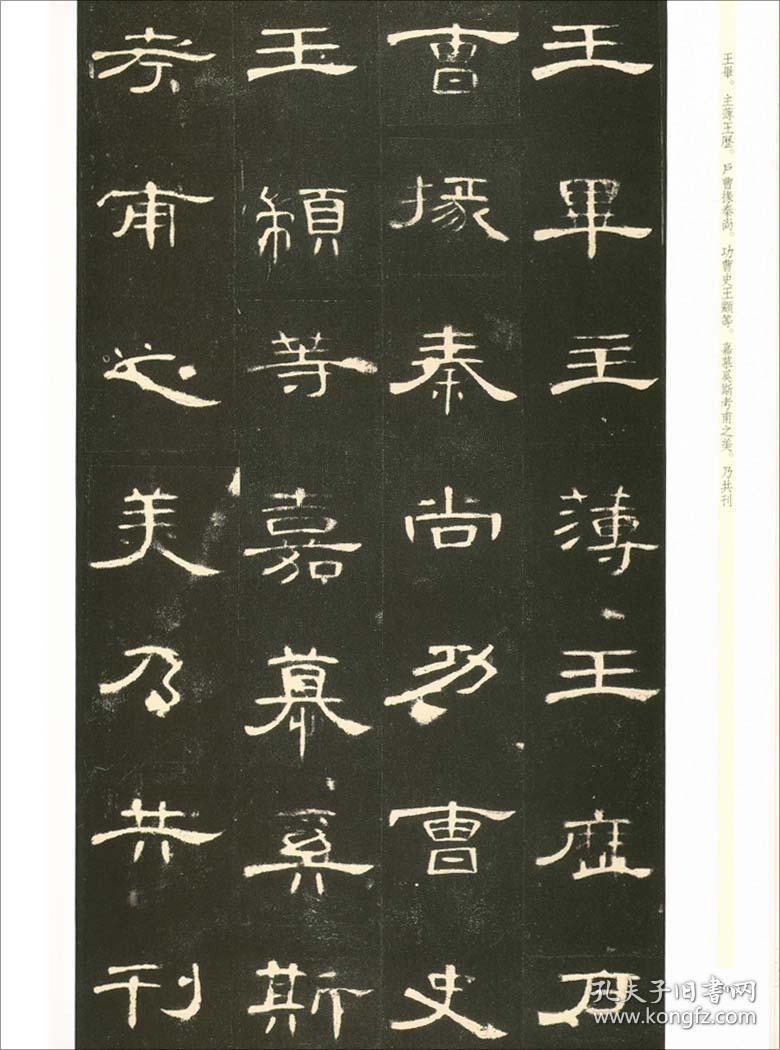 王畢。主薄王歷。戶曹掾秦尚。功曹史王顓等。嘉慕奚斯考甫之美。乃共刊
王畢主薄王歷戶
曹掾秦尚功曹史
王顓等嘉慕奚斯
考甫之美乃共刊
孔夫子旧书网
www.kongfz.com